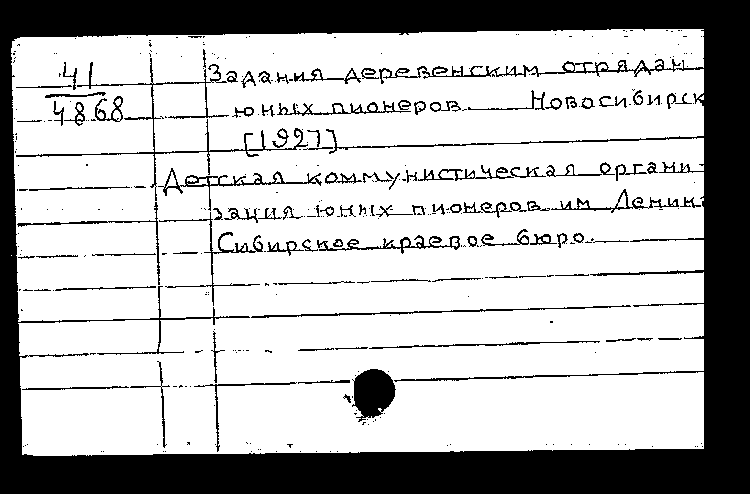 41
4868
Задания деревенским отрядам
юных пионеров. Новосибирск
[1927]
Детская коммунистическая органи-
зация юных пионеров им Ленина
Сибирское краевое бюро.